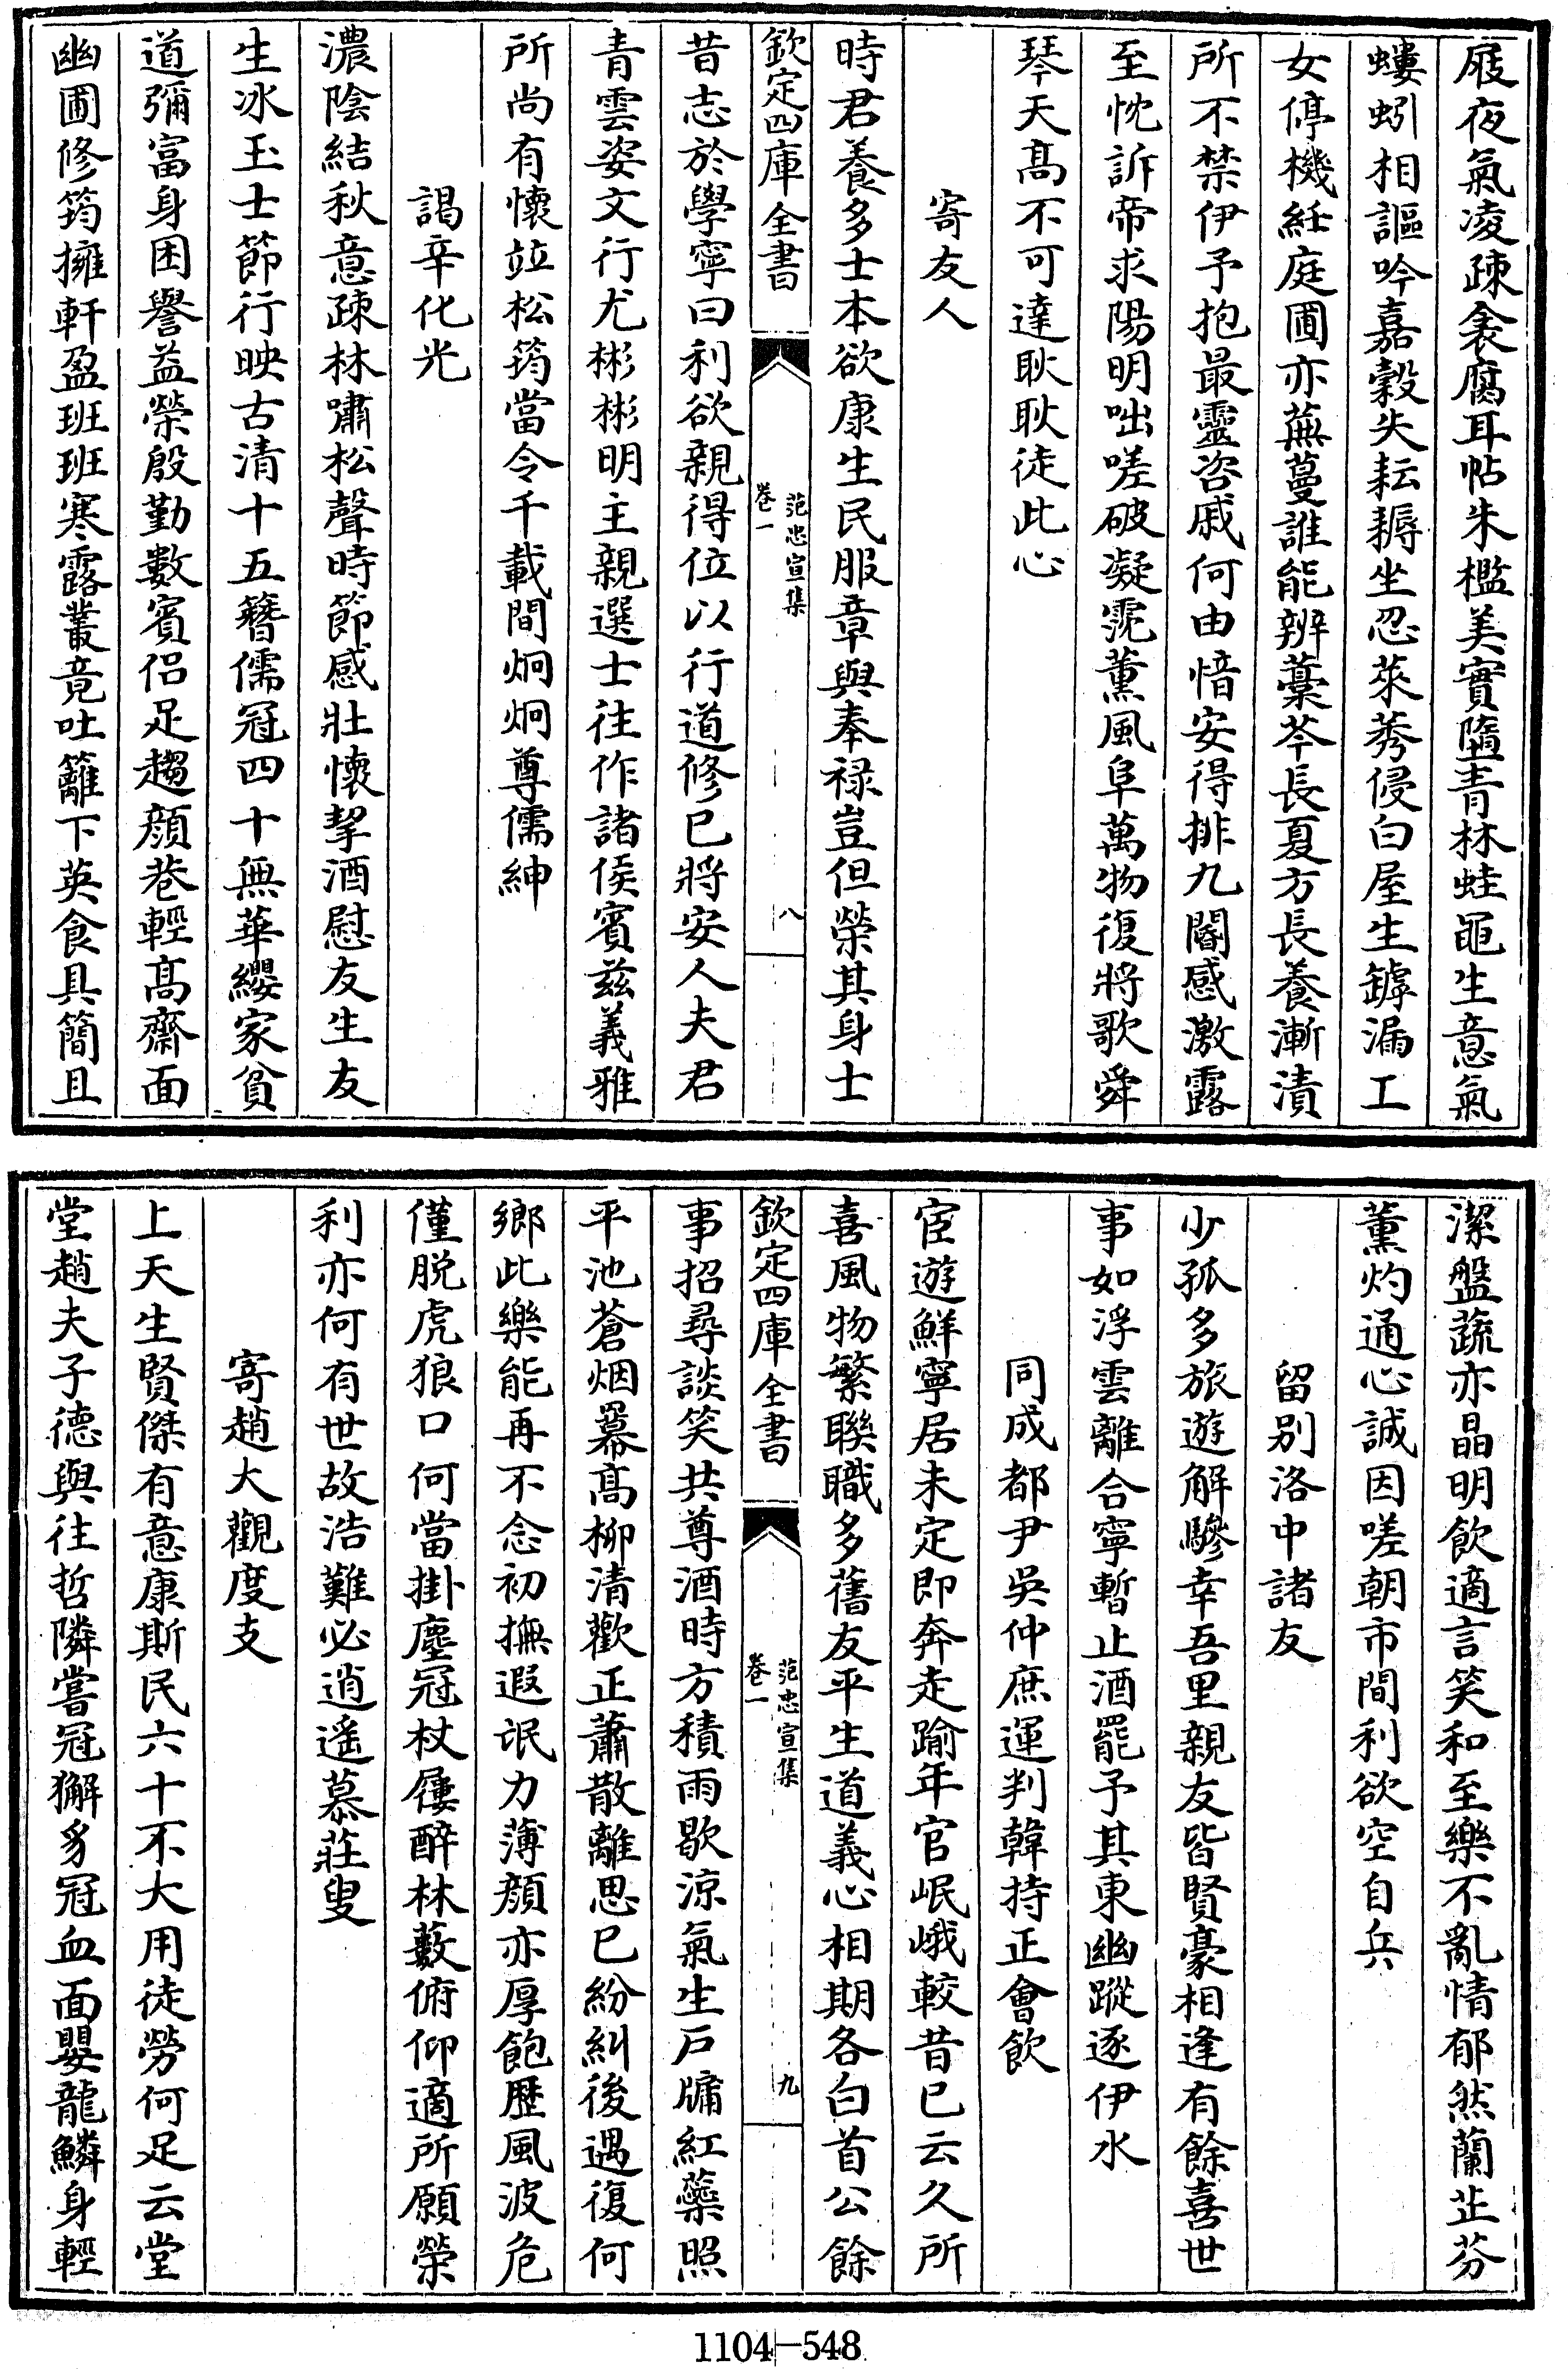 屐夜氣凌疎衾腐耳帖朱檻美實墮青林蛙黽生意氣
螻蚓相謳吟嘉穀失耘耨坐忍萊莠侵白屋生罅漏工
女停機絍庭圃亦蕪蔓誰能辨藁芩長夏方長養漸漬
所不禁伊予抱最靈咨戚何由愔安得排九閽感激露
至忱訴帝求陽明咄嗟破凝霓薫風阜萬物復將歌舜
琴天髙不可達耿耿徒此心
寄友人
時君養多士本欲康生民服章與奉禄豈但榮其身士
欽定四庫全書
范忠宣集
卷一
八
昔志於學寧曰利欲親得位以行道修已將安人夫君
青雲姿文行尤彬彬明主親選士往作諸侯賓兹義雅
所尚有懷竝松筠當令千載間炯炯尊儒紳
謁辛化光
濃陰結秋意疎林嘯松聲時節感壯懷挈酒慰友生友
生冰玉士節行映古清十五簪儒冠四十無華纓家貧
道彌富身困譽益榮殷勤數賓侣足趨顔巷輕髙齋面
幽圃修筠擁軒盈班班寒露叢竟吐籬下英食具簡且
潔盤蔬亦晶明飲適言笑和至樂不亂情郁然蘭芷芬
薫灼通心誠因嗟朝市間利欲空自兵
留别洛中諸友
少孤多旅遊解驂幸吾里親友皆賢豪相逢有餘喜世
事如浮雲離合寧暫止酒罷予其東幽蹤逐伊水
同成都尹吳仲庶運判韓持正會飲
宦遊鮮寧居未定即奔走踰年官岷峨較昔已云久所
喜風物繁聯職多舊友平生道義心相期各白首公餘
欽定四庫全書
范忠宣集
卷一
九
事招尋談笑共尊酒時方積雨歇涼氣生戸牖紅蘂照
平池蒼烟羃髙柳清歡正蕭散離思已紛糾後遇復何
鄉此樂能再不念初撫遐氓力薄顔亦厚飽歴風波危
僅脱虎狼口何當掛塵冠杖屨醉林藪俯仰適所願榮
利亦何有世故浩難必逍遥慕莊叟
寄趙大觀度支
上天生賢傑有意康斯民六十不大用徒勞何足云堂
堂趙夫子德與往哲隣嘗冠獬豸冠血面嬰龍鱗身輕
1104-548